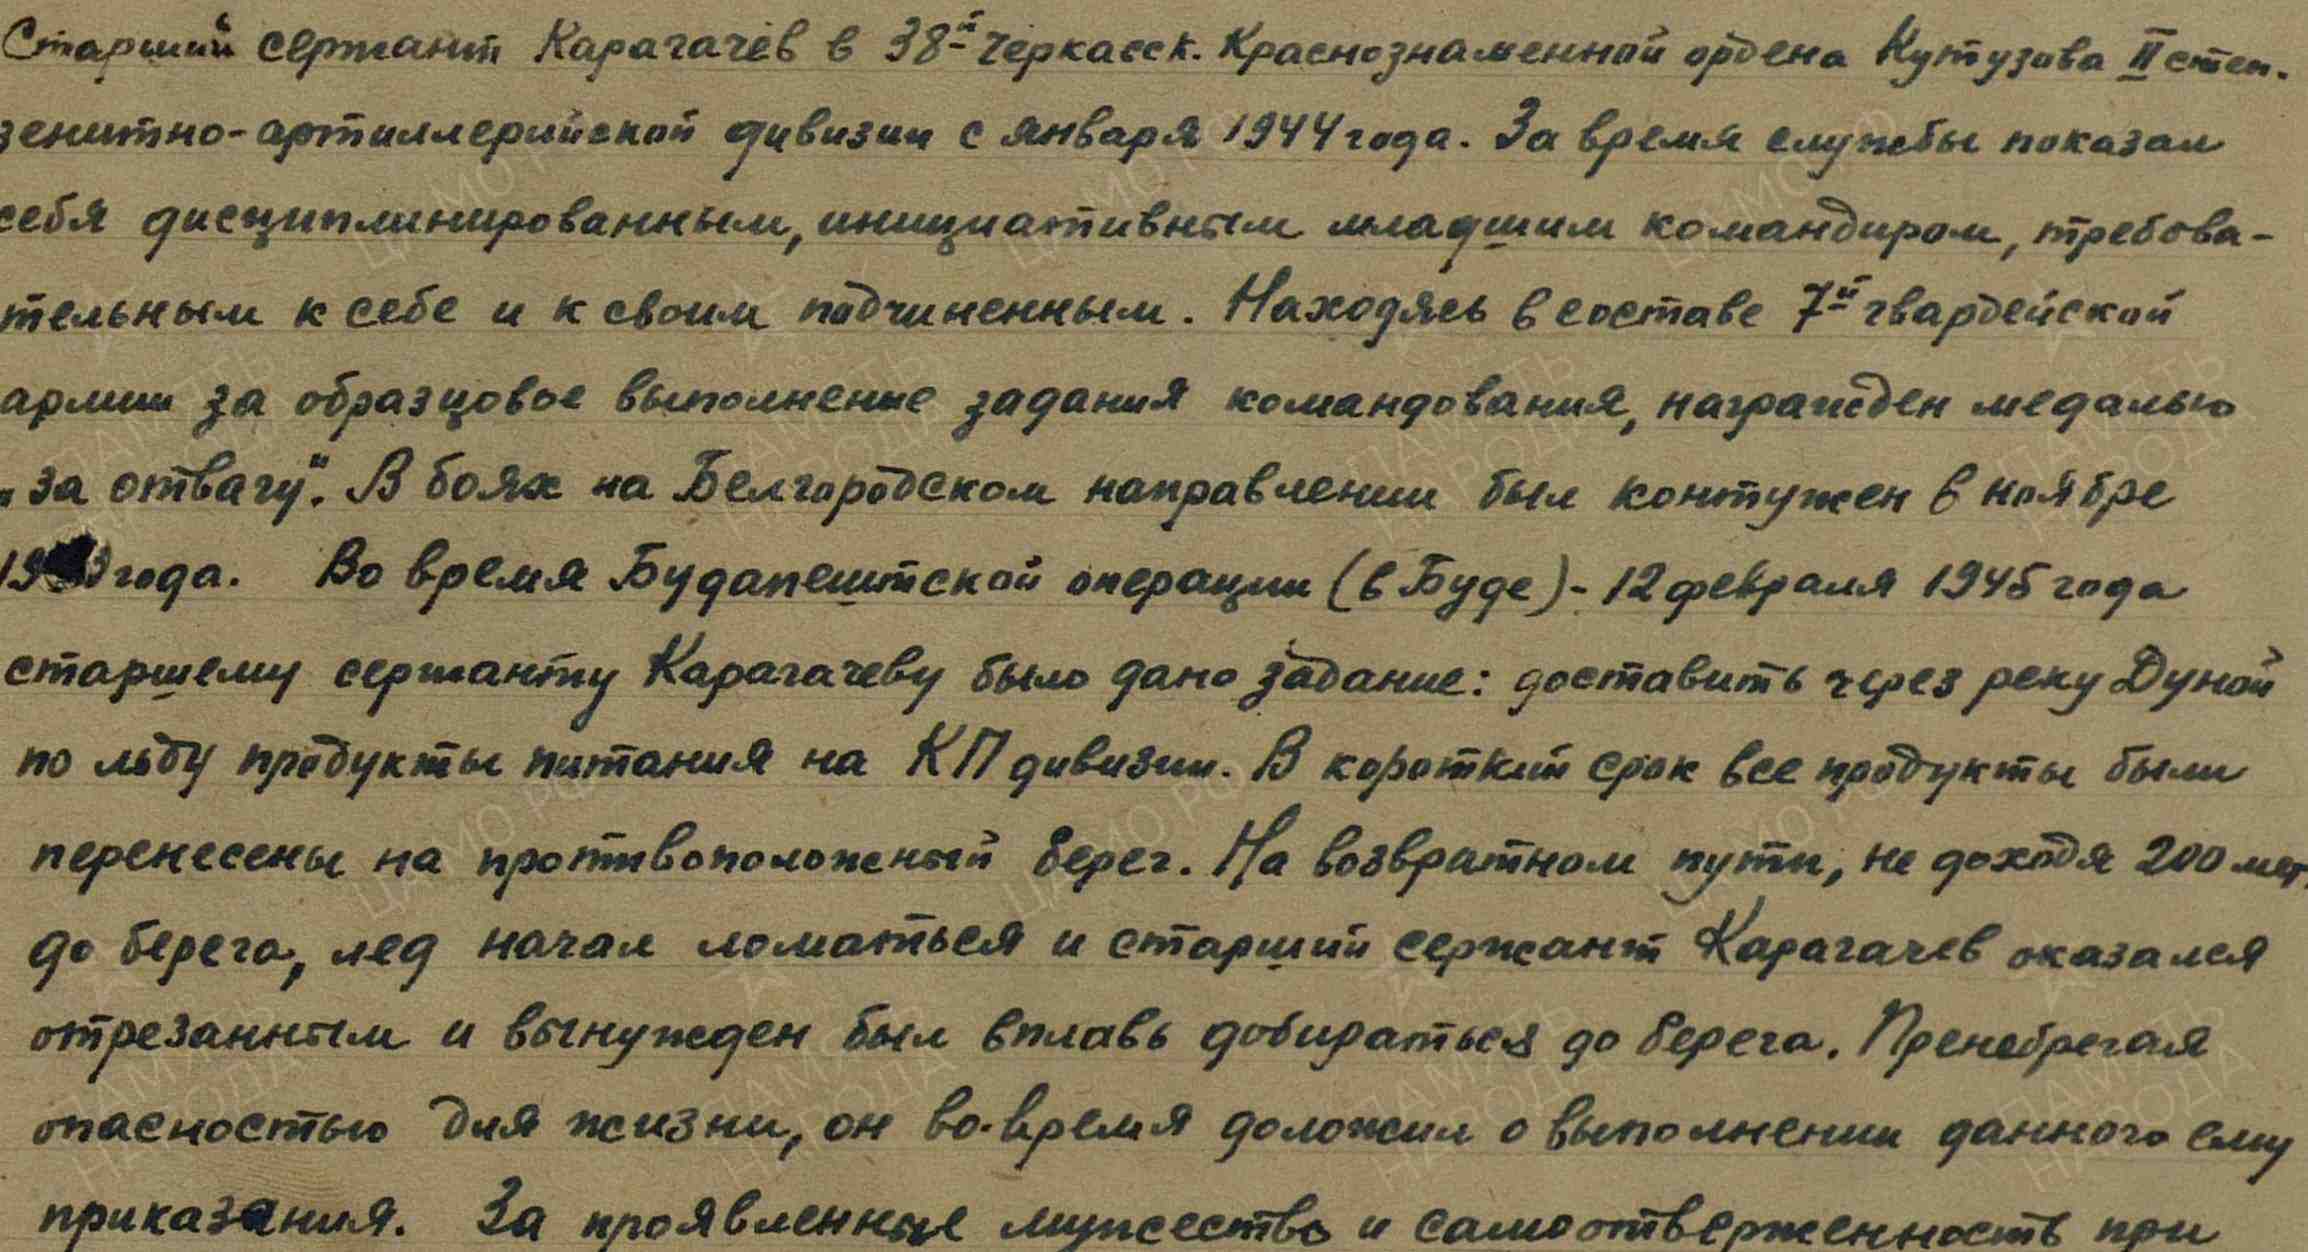 Старший сержант Карагачев в 38й Черкасск. Краснознаменной ордена Кутузова II степ.
зенитно-артиллерийской дивизии с января 1944 года. За время службы показал
себя дисциплинированным, инициативным младшим командиром, требова-
тельным к себе и к своим подчиненным. Находясь в составе 7й гвардейской
армии за образцовое выполнение задания командования, награжден медалью
„за отвагу". В боях на Белгородском направлении был контужен в ноябре
года. Во время Будапештской операции (в Буде) - 12 февраля 1945 года
старшему сержанту Карагачеву было дано задание: доставить через реку Дунай
по льду продукты питания на КП дивизии. В короткий срок все продукты были
перенесены на противоположный берег. На возвратном пути, не доходя 200 мет.
до берега, лед начал ломаться и старший сержант Карагачев оказался
отрезанным и вынужден был вплавь добираться до берега. Пренебрегая
опасностью для жизни, он во-время доложил о выполнении данного ему
приказания. За проявленные мужество и самоотверженность при